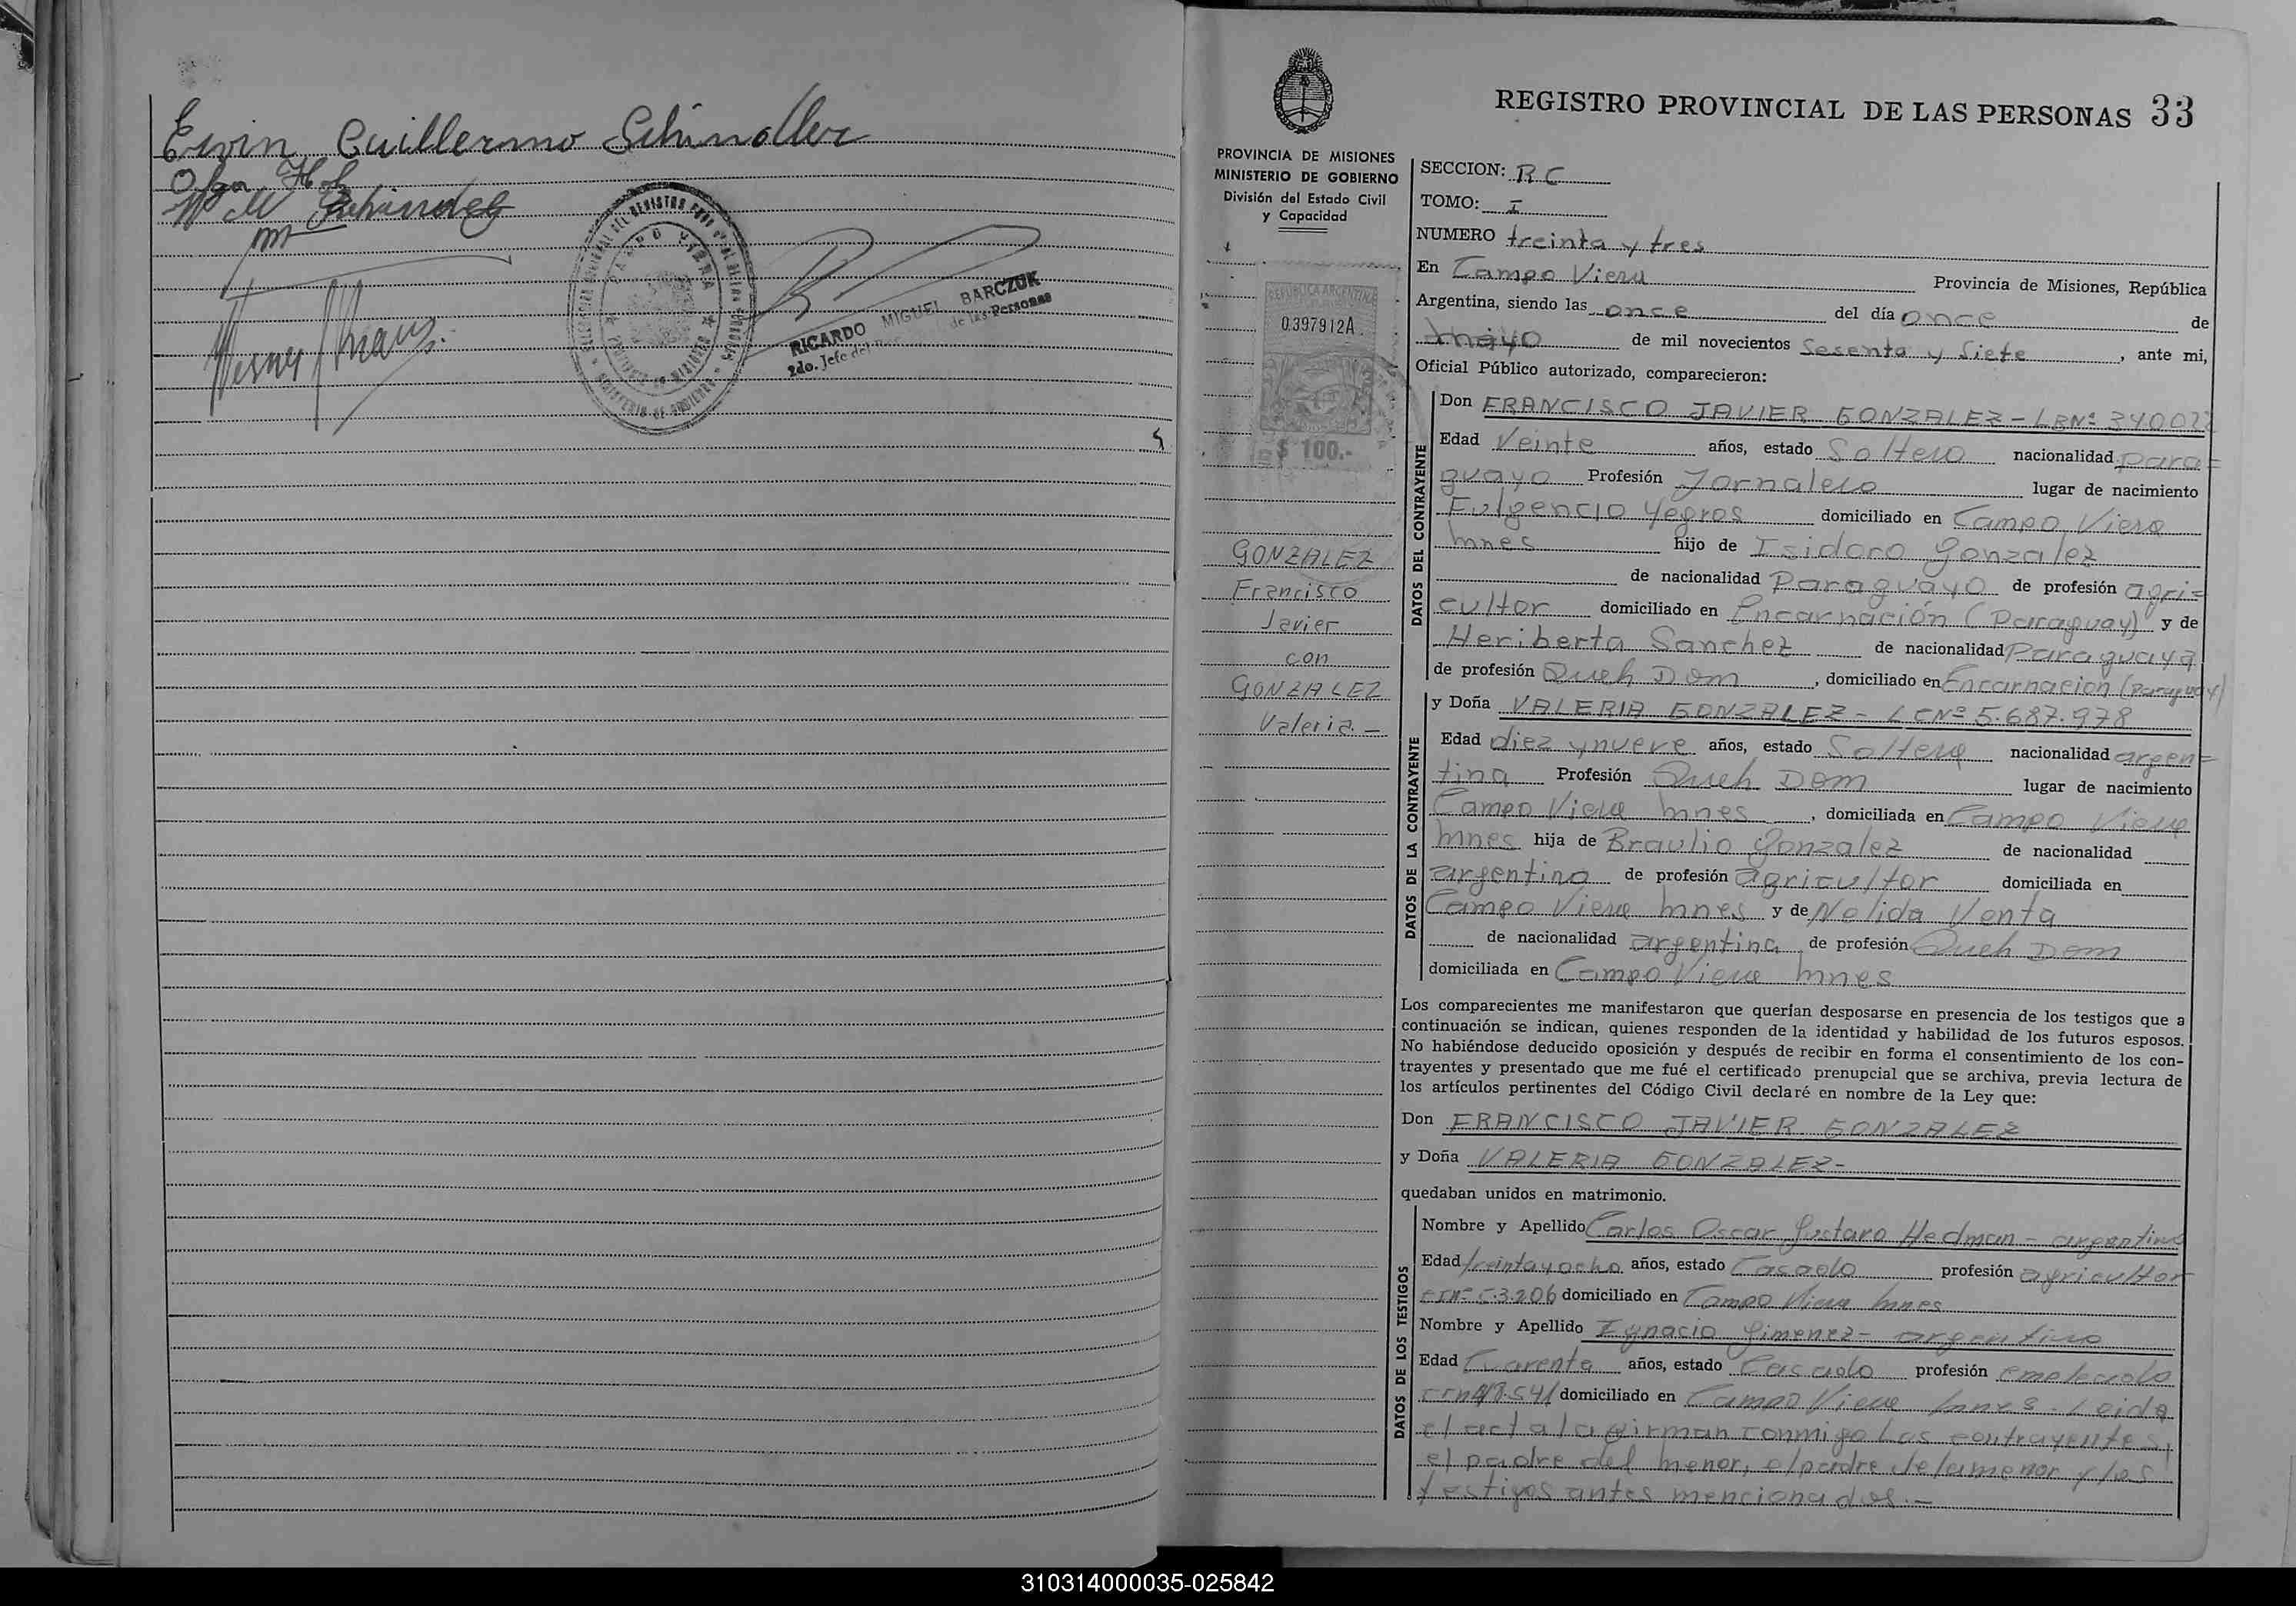 Erwin Guillermo Schindler
Olga
Schindler
Werner
CAMPO VIERA
RICARDO MIGUEL BARCZUK
2do. Jefe del de las Personas
REGISTRO PROVINCIAL DE LAS PERSONAS 33
PROVINCIA DE MISIONES
MINISTERIO DE GOBIERNO
División del Estado Civil
y Capacidad
REPUBLICA ARGENTINA
0.397912A
$ 100.-
GONZALEZ
Francisco
Javier
con
GONZALEZ
Valeria.-
SECCION: RC
TOMO: I
NUMERO treinta y tres
En Campo Viera Provincia de Misiones, República
Argentina, siendo las once del día once de
mayo de mil novecientos Sesenta y Siete, ante mi,
Oficial Público autorizado, comparecieron:
DATOS DEL CONTRAYENTE
Don FRANCISCO JAVIER GONZALEZ - LBNº 340022
Edad Veinte años, estado Soltero nacionalidad para=
guayo Profesión Jornalero lugar de nacimiento
Fulgencio Yegros domiciliado en Campo Viera
Mnes hijo de Isidoro Gonzalez
de nacionalidad Paraguayo de profesión agri=
cultor domiciliado en Encarnación (Paraguay) y de
Heriberta Sanchez de nacionalidad Paraguaya
de profesión Queh Dom, domiciliado en Encarnacion (Paraguay)
DATOS DE LA CONTRAYENTE
y Doña VALERIA GONZALEZ - LCNº 5.687.978
Edad diez y nueve años, estado Soltera nacionalidad argen=
tina Profesión Queh Dom lugar de nacimiento
Campo Viera Mnes, domiciliada en Campo Viera
Mnes hija de Braulio Gonzalez de nacionalidad
argentino de profesión agricultor domiciliada en
Campo Viera Mnes y de Nelida Venta
de nacionalidad argentina de profesión Queh Dom
domiciliada en Campo Viera Mnes
Los comparecientes me manifestaron que querían desposarse en presencia de los testigos que a
continuación se indican, quienes responden de la identidad y habilidad de los futuros esposos.
No habiéndose deducido oposición y después de recibir en forma el consentimiento de los con-
trayentes y presentado que me fué el certificado prenupcial que se archiva, previa lectura de
los artículos pertinentes del Código Civil declaré en nombre de la Ley que:
Don FRANCISCO JAVIER GONZALEZ
y Doña VALERIA GONZALEZ-
quedaban unidos en matrimonio.
DATOS DE LOS TESTIGOS
Nombre y Apellido Carlos Oscar Gustavo Hedman - argentino
Edad treinta y ocho años, estado Casado profesión agricultor
CINº 53.206 domiciliado en Campo Viera Mnes
Nombre y Apellido Ignacio Gimenez - argentino
Edad Cuarenta años, estado Casado profesión empleado
domiciliado en Campo Viera Mnes. Leida
el acta la firman conmigo los contrayentes,
el padre del menor, el padre de la menor y los
testigos antes mencionados.-
310314000035-025842